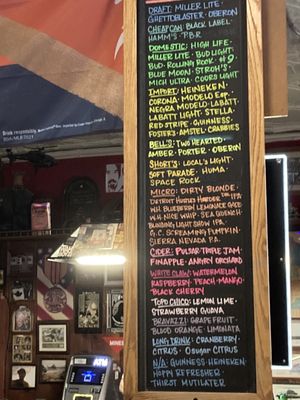 DRAFT: MILLER LITE ·
GHETTOBLASTER · OBERON
CHEAP CAN: BLACK LABEL ·
HAMM'S · P·B·R
DOMESTIC: HIGH LIFE ·
MILLER LITE · BUD LIGHT ·
BUD · ROLLING ROCK · #9 ·
BLUE MOON · STROH'S ·
MICH ULTRA · COORS LIGHT
IMPORT: HEINEKEN ·
CORONA · MODELO Esp. ·
NEGRA MODELO · LABATT ·
LABATT LIGHT · STELLA ·
RED STRIPE · GUINNESS ·
FOSTERS · AMSTEL · CRABBIES
BELL'S: TWO HEARTED ·
AMBER · PORTER · OBERON
SHORT'S: LOCAL'S LIGHT ·
SOFT PARADE · HUMA ·
SPACE ROCK
MICRO: DIRTY BLONDE ·
DETROIT HUSTLES HARDER IPA
W.H. BLUEBERRY LEMONADE
W.H. NICE WHIP · SEA QUENCH ·
BLINDING LIGHT SHOW IPA ·
G.C. SCREAMING PUMPKIN ·
SIERRA NEVADA P.A.
CIDER: PULSAR · TRIPLE JAM ·
FINAPPLE · ANGRY ORCHARD
WHITE CLAW: WATERMELON ·
RASPBERRY · PEACH · MANGO ·
BLACK CHERRY
TOPO CHICO: LEMON LIME ·
STRAWBERRY GUAVA
BRAVAZZI: GRAPEFRUIT ·
BLOOD ORANGE · LIMONATA
LONG DRINK: CRANBERRY ·
CITRUS · 0 SUGAR CITRUS
N/A: GUINNESS · HEINEKEN ·
HOPPY REFRESHER ·
THIRST MUTILATER
Drink responsibly
ATM